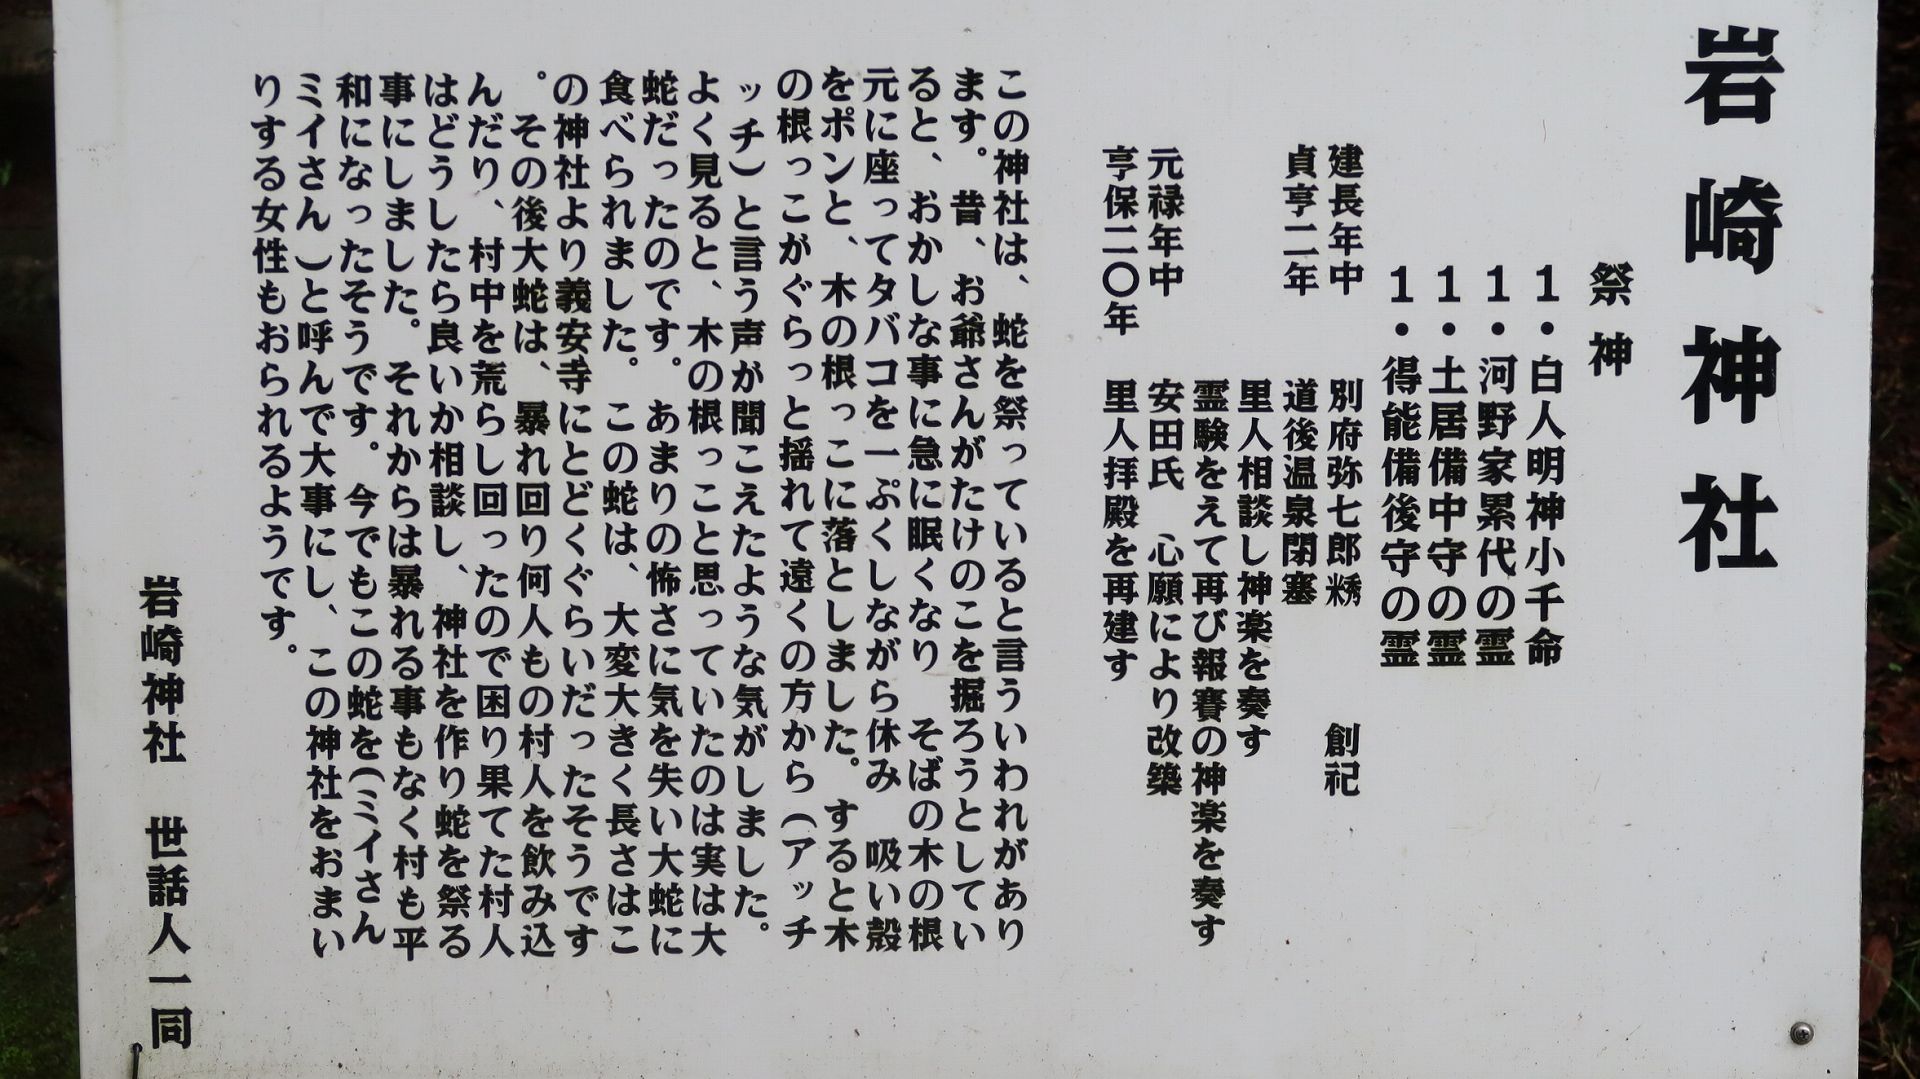 岩崎神社
祭神
1・白人明神小千命
1・河野家累代の霊
1・土居備中守の霊
1・得能備後守の霊
建長年中 別府弥七郎 創祀
貞亨二年 道後温泉閉塞
里人相談し神楽を奏す
霊験をえて再び報賽の神楽を奏す
元禄年中 安田氏 心願により改築
亨保二〇年 里人拝殿を再建す
この神社は、蛇を祭っていると言ういわれがあり
ます。昔、お爺さんがたけのこを掘ろうとしてい
ると、おかしな事に急に眠くなり そばの木の根
元に座ってタバコを一ぷくしながら休み 吸い殻
をポンと、木の根っこに落としました。すると木
の根っこがぐらっと揺れて遠くの方から(アッチ
ッチ)と言う声が聞こえたような気がしました。
よく見ると、木の根っこと思っていたのは実は大
蛇だったのです。あまりの怖さに気を失い大蛇に
食べられました。この蛇は、大変大きく長さはこ
の神社より義安寺にとどくぐらいだったそうです
。その後大蛇は、暴れ回り何人もの村人を飲み込
んだり、村中を荒らし回ったので困り果てた村人
はどうしたら良いか相談し、神社を作り蛇を祭る
事にしました。それからは暴れる事もなく村も平
和になったそうです。今でもこの蛇を(ミイさん
ミイさん)と呼んで大事にし、この神社をおまい
りする女性もおられるようです。
岩崎神社 世話人一同